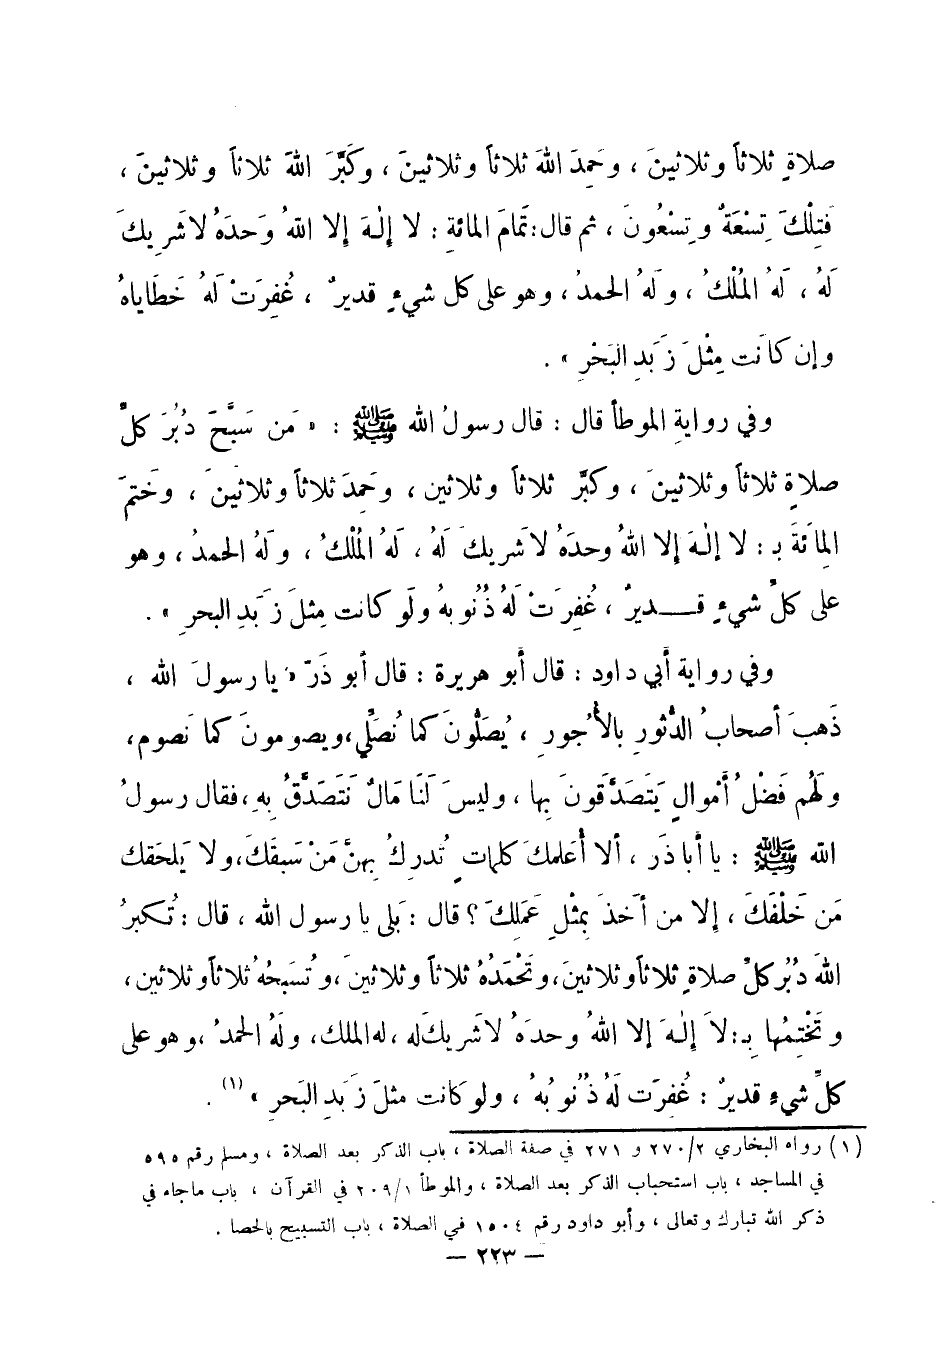 صلاةٍ ثلاثاً وثلاثينَ ، وحَمِدَ اللهَ ثلاثاً وثلاثينَ ، وكَبَّرَ اللهَ ثلاثاً وثلاثينَ ،
فَتِلْكَ تِسْعَةٌ وتِسْعُونَ ، ثم قال: تَمامَ المائةِ : لا إلٰهَ إلا اللهُ وَحدَهُ لا شَرِيكَ
لَهُ ، لَهُ المُلْكُ ، ولَهُ الحمدُ ، وهو على كل شيءٍ قديرٌ ، غُفِرَتْ لَهُ خَطَاياهُ
وإن كانَت مِثْلَ زَبَدِ البَحْرِ » .
وفي روايةِ الموطأ قال : قال رسولُ الله ﷺ : « مَن سَبَّحَ دُبُرَ كلِّ
صلاةٍ ثلاثاً وثلاثينَ ، وكبَّر ثلاثاً وثلاثين ، وحَمِدَ ثلاثاً وثلاثينَ ، وخَتمَ
المِائةَ بـ : لا إلٰهَ إلا اللهُ وحدَهُ لا شريكَ لَهُ ، لَهُ المُلْكُ ، ولَهُ الحمدُ ، وهو
على كلِّ شيءٍ قــديرٌ ، غُفِرَتْ لَهُ ذُنُوبهُ ولَو كانت مِثلَ زَبَدِ البحرِ » .
وفي رواية أبي داود : قال أبو هريرة : قال أبو ذَرّ « يا رسولَ الله ،
ذَهبَ أصحابُ الدُّثورِ بالأُجورِ ، يُصَلُّونَ كما نُصَلِّي، ويصومونَ كما نَصوم ،
ولَهُم فَضْلُ أَمْوالٍ يَتَصَدَّقونَ بها ، وليسَ لَنَا مَالٌ نَتَصَدَّقُ بِهِ ، فقال رسولُ
الله ﷺ : يا أبا ذَر ، ألا أُعلمكَ كلماتٍ تُدرِكُ بِهنَّ مَنْ سَبقَكَ ، ولا يَلحَقك
مَن خَلْفَكَ ، إلا من أخَذَ بِمثْلِ عَمَلِكَ ؟ قال : بَلى يا رسول الله ، قال : تُكبرُ
اللهَ دُبُرَ كلِّ صلاةٍ ثلاثاً وثلاثينَ ، وتَحْمَدُهُ ثلاثاً وثلاثينَ ، وتُسَبحُهُ ثلاثاً وثلاثين ،
وتَخْتِمُها بـ : لاَ إلٰهَ إلا اللهُ وحدَهُ لا شَريكَ له ، له الملك ، ولَهُ الحمدُ ، وهو على
كلِّ شيءٍ قديرٌ : غُفِرَت لَهُ ذُنُوبُهُ ، ولو كانت مثلَ زَبَدِ البَحرِ » (١) .
(١) رواه البخاري ٢/ ٢٧٠ و ٢٧١ في صفة الصلاة ، باب الذكر بعد الصلاة ، ومسلم رقم ٥٩٥
في المساجد ، باب استحباب الذكر بعد الصلاة ، والموطأ ١/ ٢٠٩ في القرآن ، باب ماجاء في
ذكر الله تبارك وتعالى ، وأبو داود رقم ١٥٠٤ في الصلاة ، باب التسبيح بالحصا .
— ٢٢٣ —